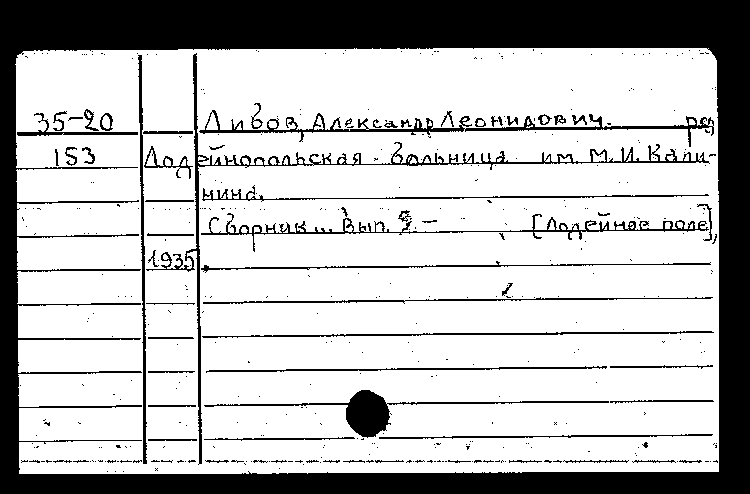 35-20 Ливов, Александр Леонидович. ред
153 Лодейнопольская больница им. М. И. Кали-
нина.
Сборник... Вып. 2. – [Лодейное поле],
1935.